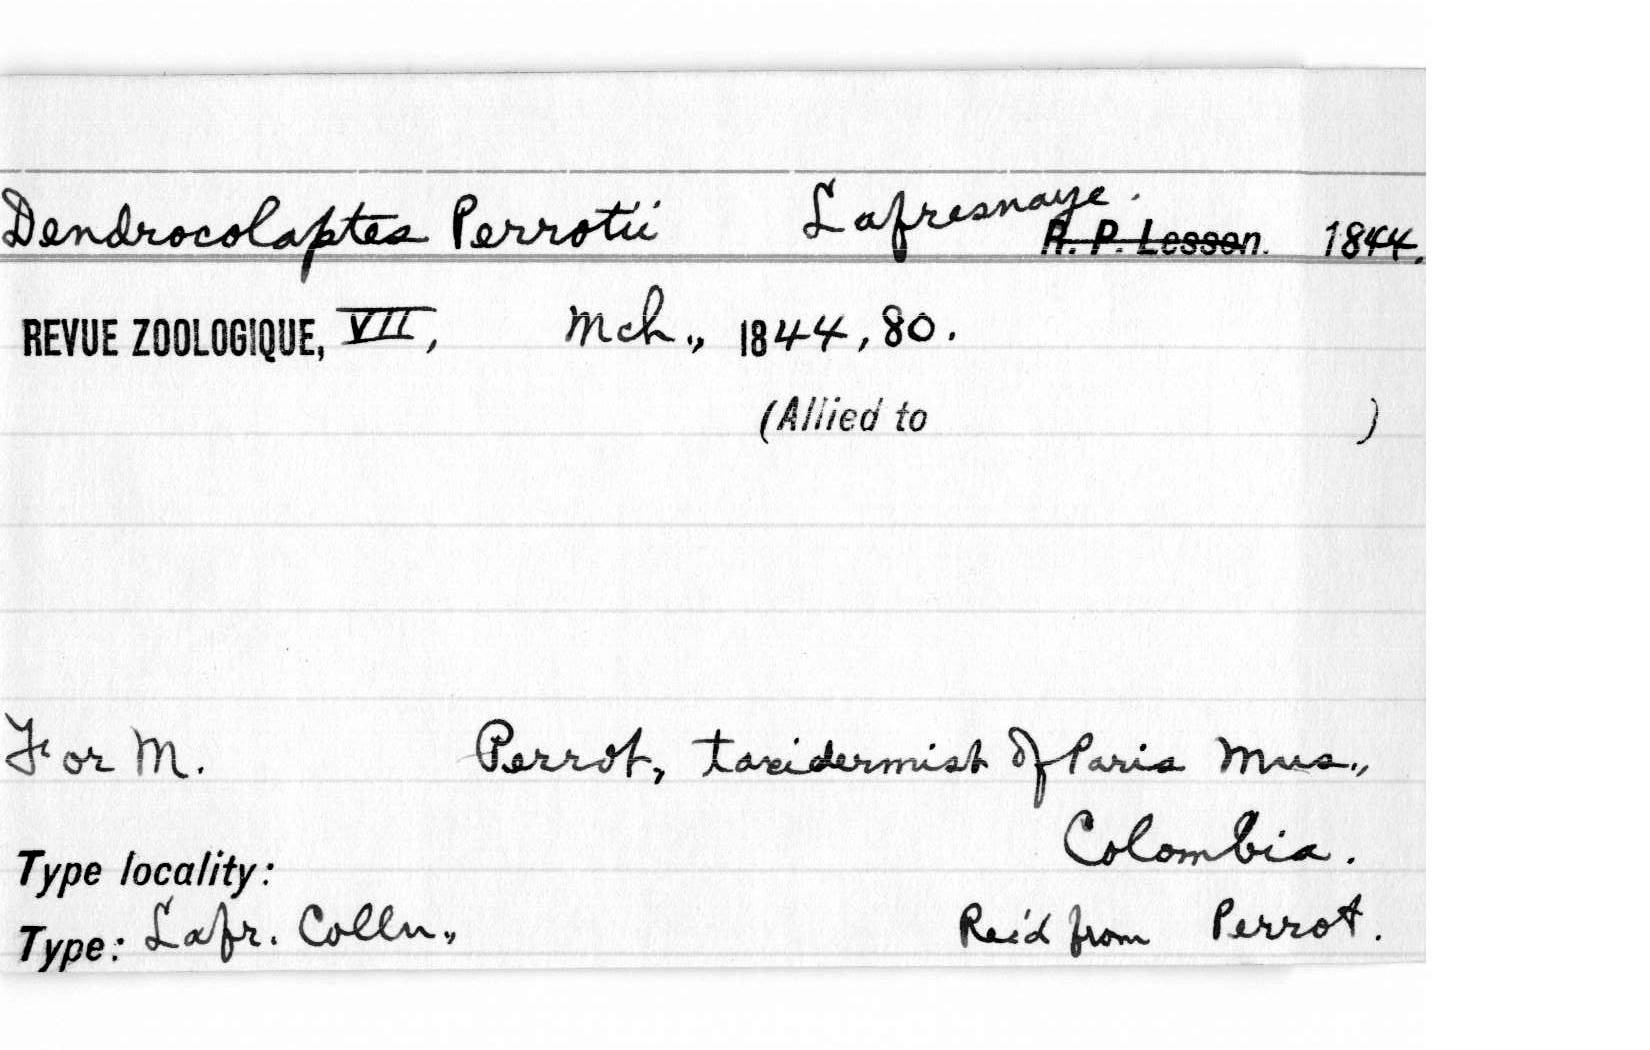 Dendrocolaptes Perrotii Lafresnaye.
R. P. Lesson. 1844.
REVUE ZOOLOGIQUE, VII, Mch., 1844, 80.
(Allied to )
For M. Perrot, taxidermist of Paris Mus.,
Colombia.
Type locality:
Type: Lafr. Colln., Rec'd from Perrot.